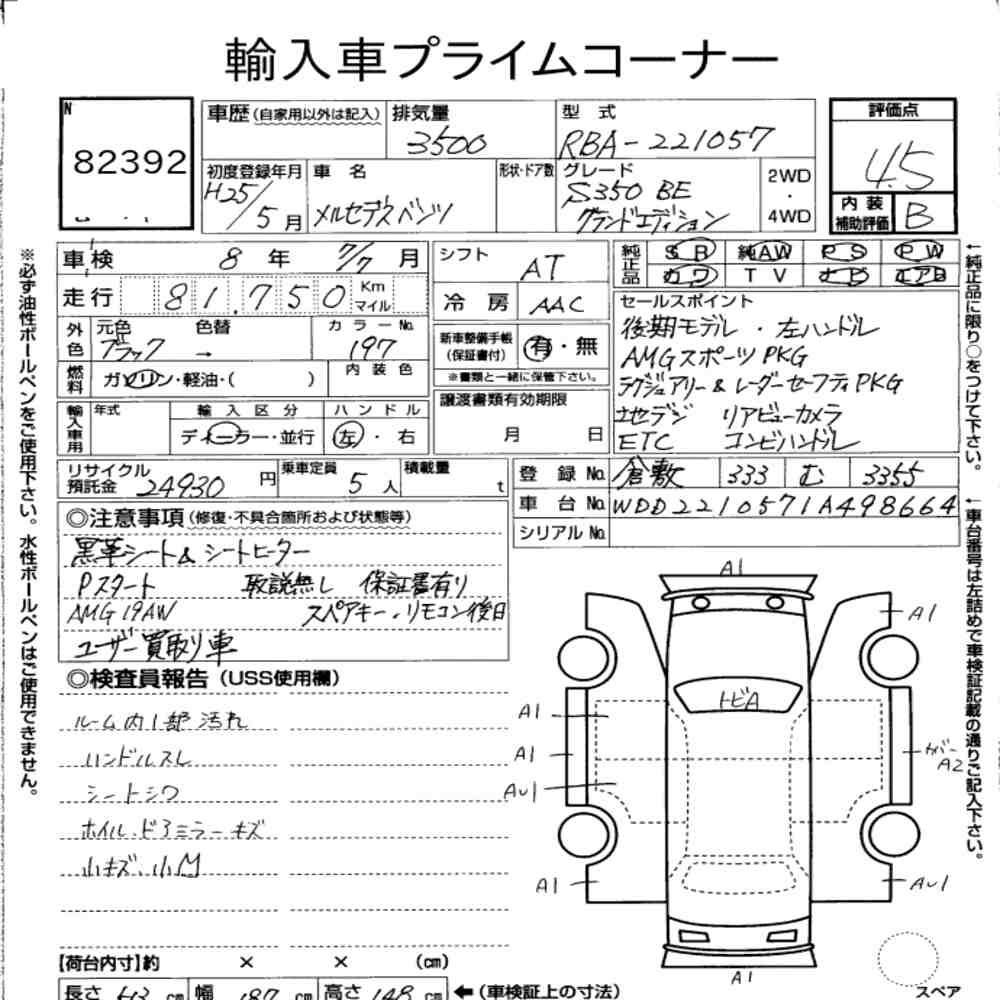 輸入車プライムコーナー
N
82392
車歴 (自家用以外は記入)
排気量
3500
型式
RBA-221057
評価点
4.5
内装
補助評価
B
初度登録年月
H25/5月
車名
メルセデスベンツ
形状・ドア数
グレード
S350 BE
グランドエディション
2WD
・
4WD
車検 8年 7/7月
走行 81,750 Km
マイル
外色
元色
ブラック
色替
→
カラーNo.
197
燃料
ガソリン・軽油・( )
内装色
輸入車用
年式
輸入区分
ディーラー・並行
ハンドル
左・右
リサイクル
預託金
24930円
乗車定員
5人
積載量
t
シフト
AT
冷房
AAC
新車整備手帳
(保証書付)
有・無
※書類と一緒に保管下さい。
譲渡書類有効期限
月 日
純正品
SR 純AW PS PW
カワ TV ナビ エアB
セールスポイント
後期モデル・左ハンドル
AMGスポーツPKG
ラグジュアリー&レーダーセーフティPKG
地デジ リアビューカメラ
ETC コンビハンドル
登録No. 倉敷 333 む 3355
車台No. WDD2210571A498664
シリアルNo.
◎注意事項 (修復・不具合箇所および状態等)
黒革シート&シートヒーター
Pスタート 取説無し 保証書有り
AMG19AW スペアキー・リモコン後日
ユーザー買取り車
◎検査員報告 (USS使用欄)
ルーム内1部汚れ
ハンドルスレ
シートシワ
ホイル、ドアミラーキズ
小キズ、小凹
A1
A1
トビA
A1
A1
AU1
カバー
A2
A1
AU1
A1
【荷台内寸】約 × × (cm)
長さ cm 幅 187 cm 高さ 148 cm ←(車検証上の寸法)
スペア
※必ず油性ボールペンをご使用下さい。水性ボールペンはご使用できません。
←純正品に限り○をつけて下さい。
←車台番号は左詰めで車検証記載の通りご記入下さい。